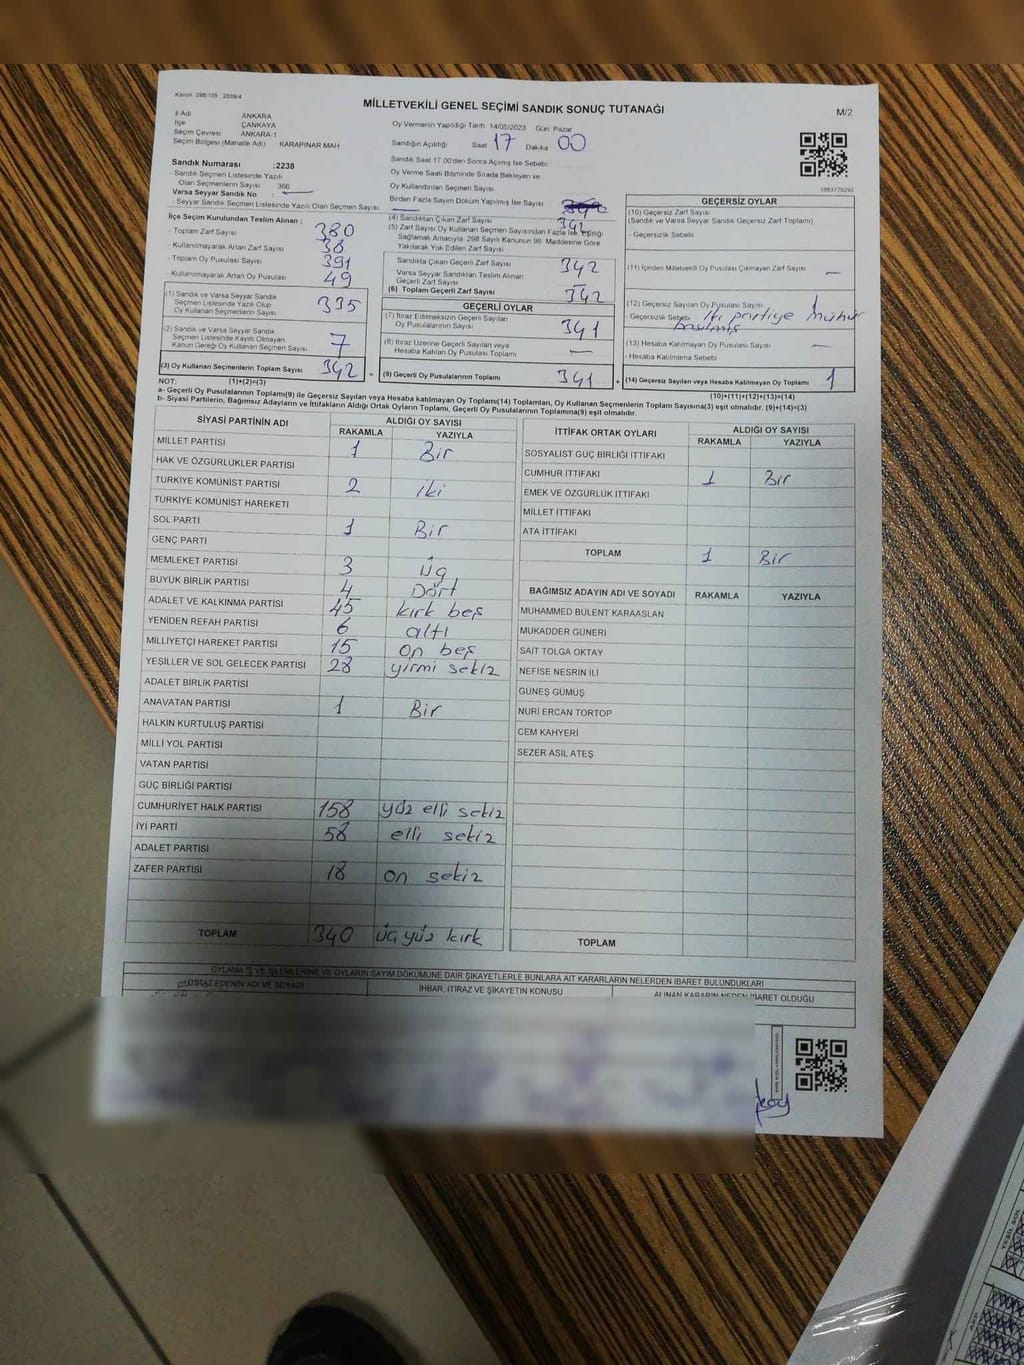 Kanun: 298/105 : 2839/4
MİLLETVEKİLİ GENEL SEÇİMİ SANDIK SONUÇ TUTANAĞI
M/2
İl Adı ANKARA
İlçe ÇANKAYA
Seçim Çevresi ANKARA-1
Seçim Bölgesi (Mahalle Adı) KARAPINAR MAH
Oy Vermenin Yapıldığı Tarih 14/05/2023 Gün Pazar
Sandığın Açıldığı Saat 17 Dakika 00
Sandık Saat 17:00'den Sonra Açılmış İse Sebebi
Oy Verme Saati Bitiminde Sırada Bekleyen ve
Oy Kullandırılan Seçmen Sayısı
Birden Fazla Sayım Döküm Yapılmış İse Sayısı
Sandık Numarası :2238
- Sandık Seçmen Listesinde Yazılı
Olan Seçmenlerin Sayısı 366
Varsa Seyyar Sandık No :
- Seyyar Sandık Seçmen Listesinde Yazılı Olan Seçmen Sayısı
İlçe Seçim Kurulundan Teslim Alınan ;
- Toplam Zarf Sayısı 380
- Kullanılmayarak Artan Zarf Sayısı 38
- Toplam Oy Pusulası Sayısı 391
- Kullanılmayarak Artan Oy Pusulası 49
(1) Sandık ve Varsa Seyyar Sandık
Seçmen Listesinde Yazılı Olup
Oy Kullanan Seçmenlerin Sayısı 335
(2) Sandık ve Varsa Seyyar Sandık
Seçmen Listesinde Kayıtlı Olmayan
Kanun Gereği Oy Kullanan Seçmen Sayısı 7
(3) Oy Kullanan Seçmenlerin Toplam Sayısı 342 =
(4) Sandıktan Çıkan Zarf Sayısı 342
(5) Zarf Sayısı Oy Kullanan Seçmen Sayısından Fazla İse, Eşitliği
Sağlamak Amacıyla 298 Sayılı Kanunun 98. Maddesine Göre
Yakılarak Yok Edilen Zarf Sayısı
Sandıkta Çıkan Geçerli Zarf Sayısı 342
Varsa Seyyar Sandıktan Teslim Alınan
Geçerli Zarf Sayısı
(6) Toplam Geçerli Zarf Sayısı 342
GEÇERLİ OYLAR
(7) İtiraz Edilmeksizin Geçerli Sayılan
Oy Pusulalarının Sayısı 341
(8) İtiraz Üzerine Geçerli Sayılan veya
Hesaba Katılan Oy Pusulası Toplamı —
(9) Geçerli Oy Pusulalarının Toplamı 341 +
1083770292
GEÇERSİZ OYLAR
(10) Geçersiz Zarf Sayısı
(Sandık ve Varsa Seyyar Sandık Geçersiz Zarf Toplamı)
- Geçersizlik Sebebi
(11) İçinden Milletvekili Oy Pusulası Çıkmayan Zarf Sayısı —
(12) Geçersiz Sayılan Oy Pusulası Sayısı 1
- Geçersizlik Sebebi iki partiye mühür
basılmış
(13) Hesaba Katılmayan Oy Pusulası Sayısı —
- Hesaba Katılmama Sebebi
(14) Geçersiz Sayılan veya Hesaba Katılmayan Oy Toplamı 1
NOT: (1)+(2)=(3) (10)+(11)+(12)+(13)=(14)
a- Geçerli Oy Pusulalarının Toplamı(9) ile Geçersiz Sayılan veya Hesaba katılmayan Oy Toplamı(14) Toplamları, Oy Kullanan Seçmenlerin Toplam Sayısına(3) eşit olmalıdır. (9)+(14)=(3)
b- Siyasi Partilerin, Bağımsız Adayların ve İttifakların Aldığı Ortak Oyların Toplamı, Geçerli Oy Pusulalarının Toplamına(9) eşit olmalıdır.
SİYASİ PARTİNİN ADI ALDIĞI OY SAYISI
RAKAMLA YAZIYLA
MİLLET PARTİSİ 1 Bir
HAK VE ÖZGÜRLÜKLER PARTİSİ
TÜRKİYE KOMÜNİST PARTİSİ 2 iki
TÜRKİYE KOMÜNİST HAREKETİ
SOL PARTİ 1 Bir
GENÇ PARTİ
MEMLEKET PARTİSİ 3 üç
BÜYÜK BİRLİK PARTİSİ 4 Dört
ADALET VE KALKINMA PARTİSİ 45 kırk beş
YENİDEN REFAH PARTİSİ 6 altı
MİLLİYETÇİ HAREKET PARTİSİ 15 on beş
YEŞİLLER VE SOL GELECEK PARTİSİ 28 yirmi sekiz
ADALET BİRLİK PARTİSİ
ANAVATAN PARTİSİ 1 Bir
HALKIN KURTULUŞ PARTİSİ
MİLLİ YOL PARTİSİ
VATAN PARTİSİ
GÜÇ BİRLİĞİ PARTİSİ
CUMHURİYET HALK PARTİSİ 158 yüz elli sekiz
İYİ PARTİ 58 elli sekiz
ADALET PARTİSİ
ZAFER PARTİSİ 18 on sekiz
TOPLAM 340 üç yüz kırk
İTTİFAK ORTAK OYLARI ALDIĞI OY SAYISI
RAKAMLA YAZIYLA
SOSYALİST GÜÇ BİRLİĞİ İTTİFAKI
CUMHUR İTTİFAKI 1 Bir
EMEK VE ÖZGÜRLÜK İTTİFAKI
MİLLET İTTİFAKI
ATA İTTİFAKI
TOPLAM 1 Bir
BAĞIMSIZ ADAYIN ADI VE SOYADI RAKAMLA YAZIYLA
MUHAMMED BÜLENT KARAASLAN
MUKADDER GÜNERİ
SAİT TOLGA OKTAY
NEFİSE NESRİN İLİ
GÜNEŞ GÜMÜŞ
NURİ ERCAN TORTOP
CEM KAHYERİ
SEZER ASİL ATEŞ
TOPLAM
OYLAMA İŞ VE İŞLEMLERİNE VE OYLARIN SAYIM DÖKÜMÜNE DAİR ŞİKAYETLERLE BUNLARA AİT KARARLARIN NELERDEN İBARET BULUNDUKLARI
İTİRAZ EDENİN ADI VE SOYADI İHBAR, İTİRAZ VE ŞİKAYETİN KONUSU ALINAN KARARIN NEDEN İBARET OLDUĞU
YEŞİL SOL